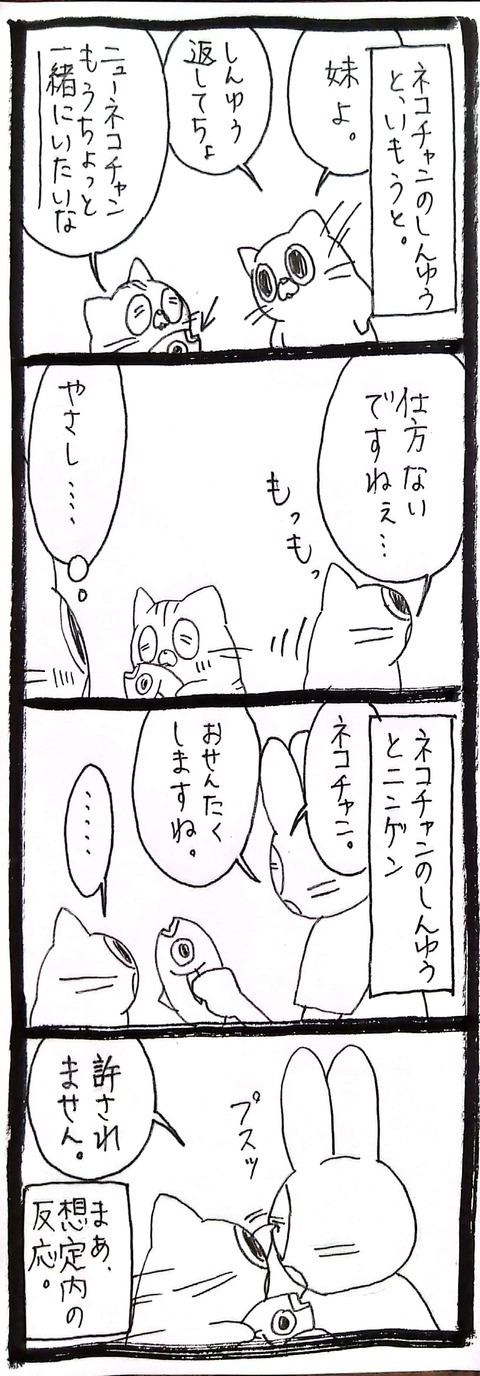 ネコチャンのしんゆう
と、いもうと。
妹よ。
しんゆう
返してちょ
ニューネコチャン
もうちょっと
一緒にいたいな
仕方ない
ですねぇ…
もっもっ
やさし……
ネコチャンのしんゆう
とニンゲン
ネコチャン。
おせんたく
しますね。
……
プスッ
許され
ません。
まあ、
想定内の
反応。